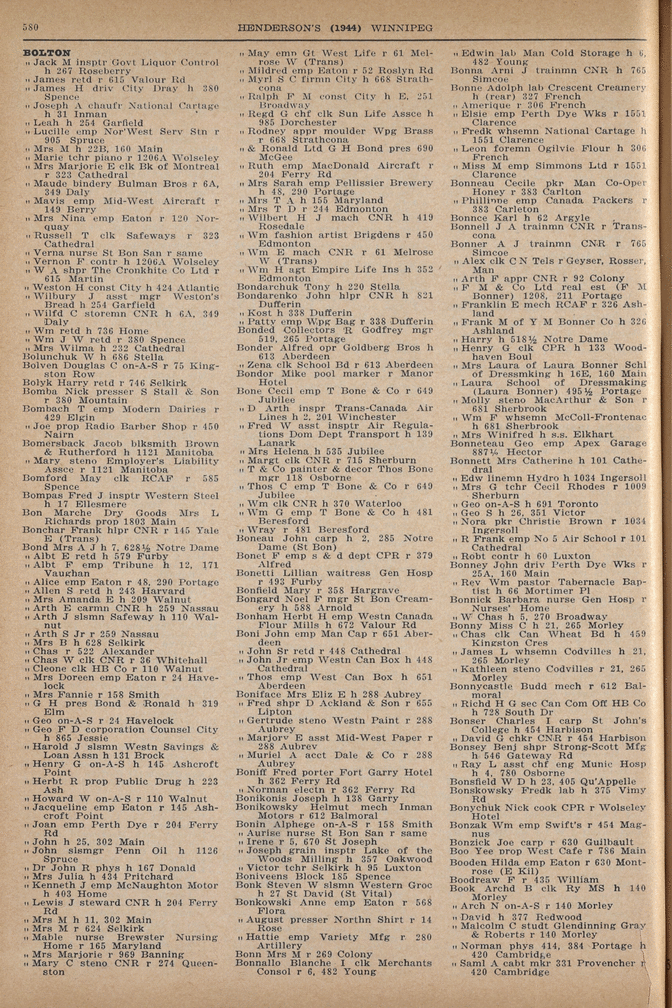 580
HENDERSON'S (1944) WINNIPEG
BOLTON
" Jack M insptr Govt Liquor Control
h 267 Roseberry
" James retd r 615 Valour Rd
" James H driv City Dray h 380
Spence
" Joseph A chaufr National Cartage
h 31 Inman
" Leah h 254 Garfield
" Lucille emp Nor'West Serv Stn r
905 Spruce
" Mrs M h 22B, 160 Main
" Marie tchr piano r 1206A Wolseley
" Mrs Marjorie E clk Bk of Montreal
r 323 Cathedral
" Maude bindery Bulman Bros r 6A,
349 Daly
" Mavis emp Mid-West Aircraft r
149 Berry
" Mrs Nina emp Eaton r 120 Nor-
quay
" Russell T clk Safeways r 323
Cathedral
" Verna nurse St Bon San r same
" Vernon F contr h 1206A Wolseley
" W A shpr The Cronkhite Co Ltd r
615 Martin
" Weston H const City h 424 Atlantic
" Wilbury J asst mgr Weston's
Bread h 254 Garfield
" Wilfd C storemn CNR h 6A, 349
Daly
" Wm retd h 736 Home
" Wm J W retd r 380 Spence
" Mrs Wilma h 232 Cathedral
Bolunchuk W h 686 Stella
Bolven Douglas C on-A-S r 75 King-
ston Row
Bolyk Harry retd r 746 Selkirk
Bomba Nick presser S Stall & Son
r 380 Mountain
Bombach T emp Modern Dairies r
429 Elgin
" Joe prop Radio Barber Shop r 450
Nairn
Bomersback Jacob blksmith Brown
& Rutherford h 1121 Manitoba
" Mary steno Employer's Liability
Assce r 1121 Manitoba
Bomford May clk RCAF r 585
Spence
Bompas Fred J insptr Western Steel
h 17 Ellesmere
Bon Marche Dry Goods Mrs L
Richards prop 1803 Main
Bonchar Frank hlpr CNR r 145 Yale
E (Trans)
Bond Mrs A J h 7, 628½ Notre Dame
" Albt E retd h 579 Furby
" Albt F emp Tribune h 12, 171
Vaughan
" Alice emp Eaton r 48, 290 Portage
" Allen S retd h 243 Harvard
" Mrs Amanda E h 209 Walnut
" Arth E carmn CNR h 259 Nassau
" Arth J slsmn Safeway h 110 Wal-
nut
" Arth S Jr r 259 Nassau
" Mrs B h 628 Selkirk
" Chas r 522 Alexander
" Chas W clk CNR r 26 Whitehall
" Cleone clk HB Co r 110 Walnut
" Mrs Doreen emp Eaton r 24 Have-
lock
" Mrs Fannie r 158 Smith
" G H pres Bond & Ronald h 319
Elm
" Geo on-A-S r 24 Havelock
" Geo F D corporation Counsel City
h 865 Jessie
" Harold J slsmn Westn Savings &
Loan Assn h 131 Brock
" Henry G on-A-S h 145 Ashcroft
Point
" Herbt R prop Public Drug h 223
Ash
" Howard W on-A-S r 110 Walnut
" Jacqueline emp Eaton r 145 Ash-
croft Point
" Joan emp Perth Dye r 204 Ferry
Rd
" John h 25, 302 Main
" John slsmgr Penn Oil h 1126
Spruce
" Dr John R phys h 167 Donald
" Mrs Julia h 434 Pritchard
" Kenneth J emp McNaughton Motor
h 403 Home
" Lewis J steward CNR h 204 Ferry
Rd
" Mrs M h 11, 302 Main
" Mrs M r 624 Selkirk
" Mable nurse Brewster Nursing
Home r 165 Maryland
" Mrs Marjorie r 969 Banning
" Mary C steno CNR r 274 Queen-
ston
" May emp Gt West Life r 61 Mel-
rose W (Trans)
" Mildred emp Eaton r 52 Roslyn Rd
" Myrl S C firmn City h 668 Strath-
cona
" Ralph F M const City h E, 251
Broadway
" Regd G chf clk Sun Life Assce h
985 Dorchester
" Rodney appr moulder Wpg Brass
r 668 Strathcona
" & Ronald Ltd G H Bond pres 590
McGee
" Ruth emp MacDonald Aircraft r
204 Ferry Rd
" Mrs Sarah emp Pellissier Brewery
h 48, 290 Portage
" Mrs T A h 155 Maryland
" Mrs T D r 244 Edmonton
" Wilbert H J mach CNR h 419
Rosedale
" Wm fashion artist Brigdens r 450
Edmonton
" Wm E mach CNR r 61 Melrose
W (Trans)
" Wm H agt Empire Life Ins h 352
Edmonton
Bondarchuk Tony h 220 Stella
Bondarenko John hlpr CNR h 821
Dufferin
" Kost h 338 Dufferin
" Patty emp Wpg Bag r 338 Dufferin
Bonded Collectors R Godfrey mgr
519, 265 Portage
Bonder Alfred opr Goldberg Bros h
613 Aberdeen
" Zena clk School Bd r 613 Aberdeen
Bondor Mike pool marker r Manor
Hotel
Bone Cecil emp T Bone & Co r 649
Jubilee
" D Arth insptr Trans-Canada Air
Lines h 2, 201 Winchester
" Fred W asst insptr Air Regula-
tions Dom Dept Transport h 139
Lanark
" Mrs Helena h 535 Jubilee
" Margt clk CNR r 715 Sherburn
" T & Co painter & decor Thos Bone
mgr 118 Osborne
" Thos C emp T Bone & Co r 649
Jubilee
" Wm clk CNR h 370 Waterloo
" Wm G emp T Bone & Co h 481
Beresford
" Wray r 481 Beresford
Boneau John carp h 2, 285 Notre
Dame (St Bon)
Bonet F emp s & d dept CPR r 379
Alfred
Bonetti Lillian waitress Gen Hosp
r 493 Furby
Bonfield Mary r 358 Hargrave
Bongard Noel F mgr St Bon Cream-
ery h 588 Arnold
Bonham Herbt H emp Westn Canada
Flour Mills h 672 Valour Rd
Boni John emp Man Cap r 651 Aber-
deen
" John Sr retd r 448 Cathedral
" John Jr emp Westn Can Box h 448
Cathedral
" Thos emp West Can Box h 651
Aberdeen
Boniface Mrs Eliz E h 288 Aubrey
" Fred shpr D Ackland & Son r 655
Lipton
" Gertrude steno Westn Paint r 288
Aubrey
" Marjory E asst Mid-West Paper r
288 Aubrey
" Muriel A acct Dale & Co r 288
Aubrey
Boniff Fred porter Fort Garry Hotel
h 362 Ferry Rd
" Norman electn r 362 Ferry Rd
Bonikonis Joseph h 138 Garry
Bonikowsky Helmut mech Inman
Motors r 612 Balmoral
Bonin Alphege on-A-S r 158 Smith
" Aurise nurse St Bon San r same
" Irene r 5, 670 St Joseph
" Joseph grain insptr Lake of the
Woods Milling h 357 Oakwood
" Victor tchr Selkirk h 95 Luxton
Boniveens Block 185 Spence
Bonk Steven W slsmn Western Groc
h 27 St David (St Vital)
Bonkowski Anne emp Eaton r 568
Flora
" August presser Northn Shirt r 14
Rose
" Hattie emp Variety Mfg r 280
Artillery
Bonn Mrs M r 269 Colony
Bonnallo Blanche I clk Merchants
Consol r 6, 482 Young
" Edwin lab Man Cold Storage h 6,
482 Young
Bonna Arni J trainmn CNR h 765
Simcoe
Bonne Adolph lab Crescent Creamery
h (rear) 327 French
" Amerique r 306 French
" Elsie emp Perth Dye Wks r 1551
Clarence
" Fredk whsemn National Cartage h
1551 Clarence
" Leon foremn Ogilvie Flour h 306
French
" Miss M emp Simmons Ltd r 1551
Clarence
Bonneau Cecile pkr Man Co-Oper
Honey r 383 Carlton
" Phillippe emp Canada Packers r
383 Carleton
Bonnee Karl h 62 Argyle
Bonnell J A trainmn CNR r Trans-
cona
Bonner A J trainmn CNR r 765
Simcoe
" Alex clk C N Tels r Geyser, Rosser,
Man
" Arth F appr CNR r 92 Colony
" F M & Co Ltd real est (F M
Bonner) 1208, 211 Portage
" Franklin E mech RCAF r 326 Ash-
land
" Frank M of Y M Bonner Co h 326
Ashland
" Harry h 518½ Notre Dame
" Henry G clk CPR h 133 Wood-
haven Boul
" Mrs Laura of Laura Bonner Schl
of Dressmaking h 16E, 160 Main
" Laura School of Dressmaking
(Laura Bonner) 495½ Portage
" Molly steno MacArthur & Son r
681 Sherbrook
" Wm F whsemn McColl-Frontenac
h 681 Sherbrook
" Mrs Winifred h s.s. Elkhart
Bonneteau Geo emp Apex Garage
887¼ Hector
Bonnett Mrs Catherine h 101 Cathe-
dral
" Edw linemn Hydro h 1034 Ingersoll
" Mrs G tchr Cecil Rhodes r 1009
Sherburn
" Geo on-A-S h 691 Toronto
" Geo S h 26, 351 Victor
" Nora pkr Christie Brown r 1034
Ingersoll
" R Frank emp No 5 Air School r 101
Cathedral
" Robt contr h 60 Luxton
Bonney John driv Perth Dye Wks r
25A, 160 Main
" Rev Wm pastor Tabernacle Bap-
tist h 66 Mortimer Pl
Bonnick Barbara nurse Gen Hosp r
Nurses' Home
" W Chas h 5, 270 Broadway
Bonny Miss C h 21, 265 Morley
" Chas clk Can Wheat Bd h 459
Kingston Cres
" James L whsemn Codvilles h 21,
265 Morley
" Kathleen steno Codvilles r 21, 265
Morley
Bonnycastle Budd mech r 612 Bal-
moral
" Richd H g sec Can Com Off HB Co
h 728 South Dr
Bonser Charles I carp St John's
College h 454 Harbison
" David G chkr CNR r 454 Harbison
Bonsey Benj shpr Strong-Scott Mfg
h 546 Gateway Rd
" Ray L asst chf eng Munic Hosp
h 4, 780 Osborne
Bonsfield W D h 23, 405 Qu'Appelle
Bonskowsky Fredk lab h 375 Vimy
Rd
Bonychuk Nick cook CPR r Wolseley
Hotel
Bonzak Wm emp Swift's r 454 Mag-
nus
Bonzick Joe carp r 630 Guilbault
Boo Yee prop West Cafe r 786 Main
Booden Hilda emp Eaton r 630 Mont-
rose (E Kil)
Boodreaw F r 435 William
Book Archd B clk Ry MS h 140
Morley
" Arch N on-A-S r 140 Morley
" David h 377 Redwood
" Malcolm C studt Glendinning Gray
& Roberts r 140 Morley
" Norman phys 414, 384 Portage h
420 Cambridge
" Saml A cabt mkr 331 Provencher r
420 Cambridge